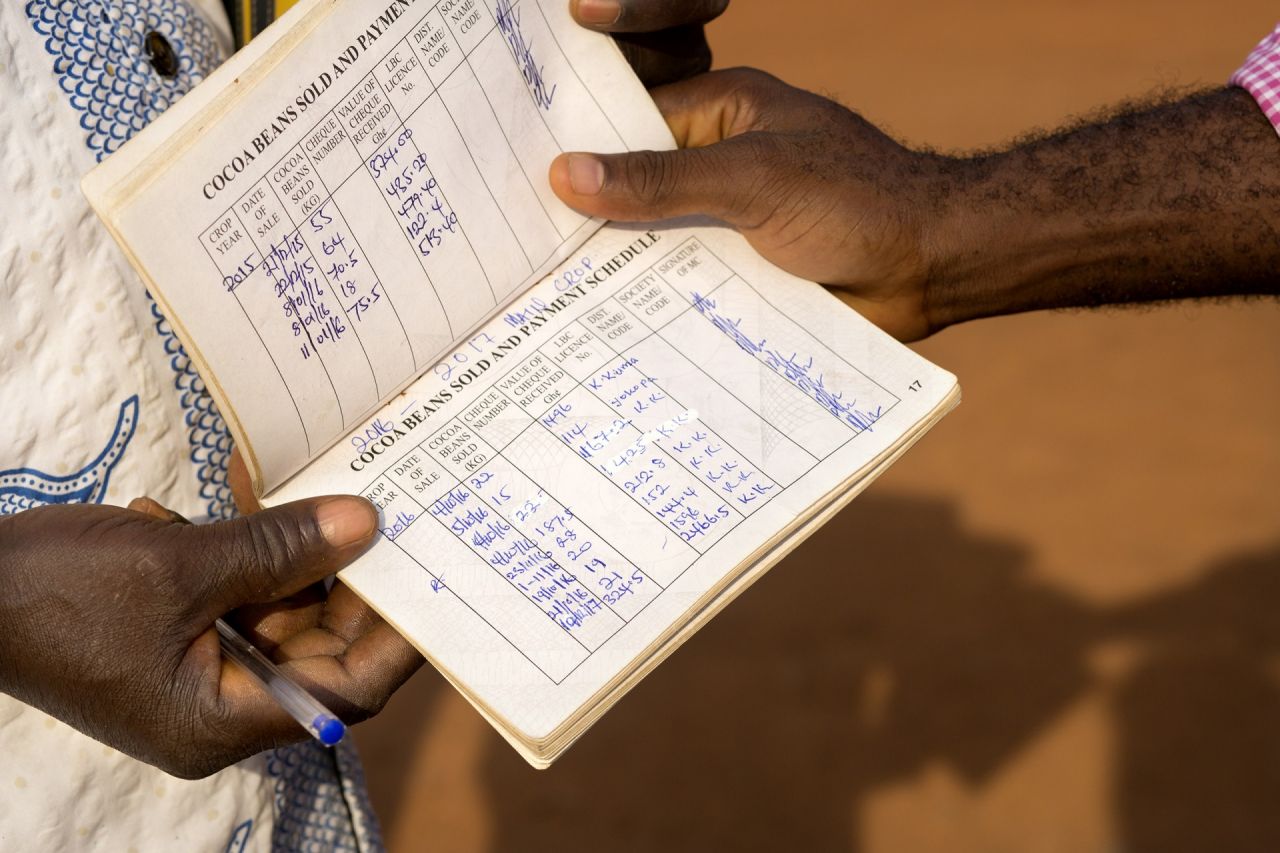 COCOA BEANS SOLD AND PAYMENT
CROP YEAR DATE OF SALE COCOA BEANS SOLD (KG) CHEQUE NUMBER VALUE OF CHEQUE RECEIVED Gh¢ LBC LICENCE No. DIST. NAME/ CODE SOCIETY NAME/ CODE
2015 21/12/15 55
22/12/15 64 485.20
8/01/16 70.5 479.40
8/01/16 18 122.4
11/01/16 75.5 513.40
2016 - 2017 MAIN CROP
COCOA BEANS SOLD AND PAYMENT SCHEDULE
CROP YEAR DATE OF SALE COCOA BEANS SOLD (KG) CHEQUE NUMBER VALUE OF CHEQUE RECEIVED Gh¢ LBC LICENCE No. DIST. NAME/ CODE SOCIETY NAME/ CODE SIGNATURE OF MC
2016 4/10/16 22 1496 K. Kuma
5/10/16 15 114 Yokopa
22 1167.2 K.K
187.5 1425 K.K
28 212.8 K.K
1-11/16 20 152 K.K
19/10/16 19 144.4 K.K
21/10/16 21 1596 K.K
324.5 2466.5 K.K
17